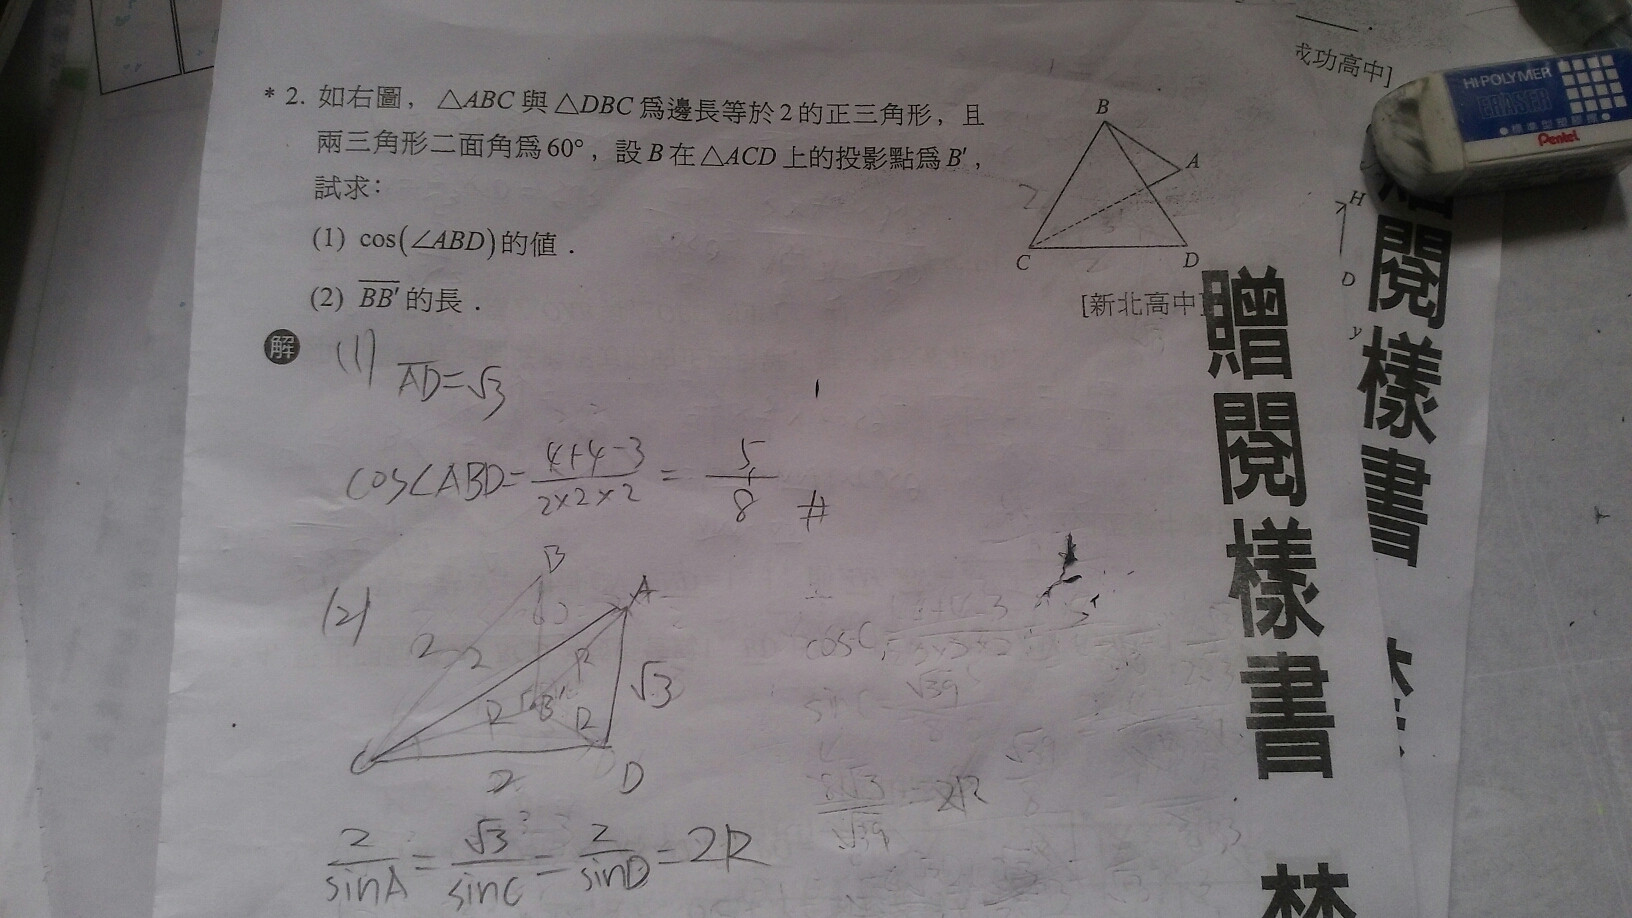 成功高中]
HI-POLYMER
ERASER
標準型塑膠擦
Pentel
* 2. 如右圖，△ABC 與 △DBC 為邊長等於 2 的正三角形，且
兩三角形二面角為 60°，設 B 在 △ACD 上的投影點為 B′，
試求：
(1) cos(∠ABD) 的值．
(2) BB′ 的長．
B
A
C
D
2
2
[新北高中]
H
D
y
贈閱樣書 林
贈閱樣書 林
解
(1) AD=√3
cos∠ABD= (4+4-3)/(2×2×2) = 5/8 #
(2)
B
A
2
2
R
√3
R
B′
R
C
2
D
cosC
sinC
√39
8
8√3/√39 = 2R
2/sinA = √3/sinC = 2/sinD = 2R